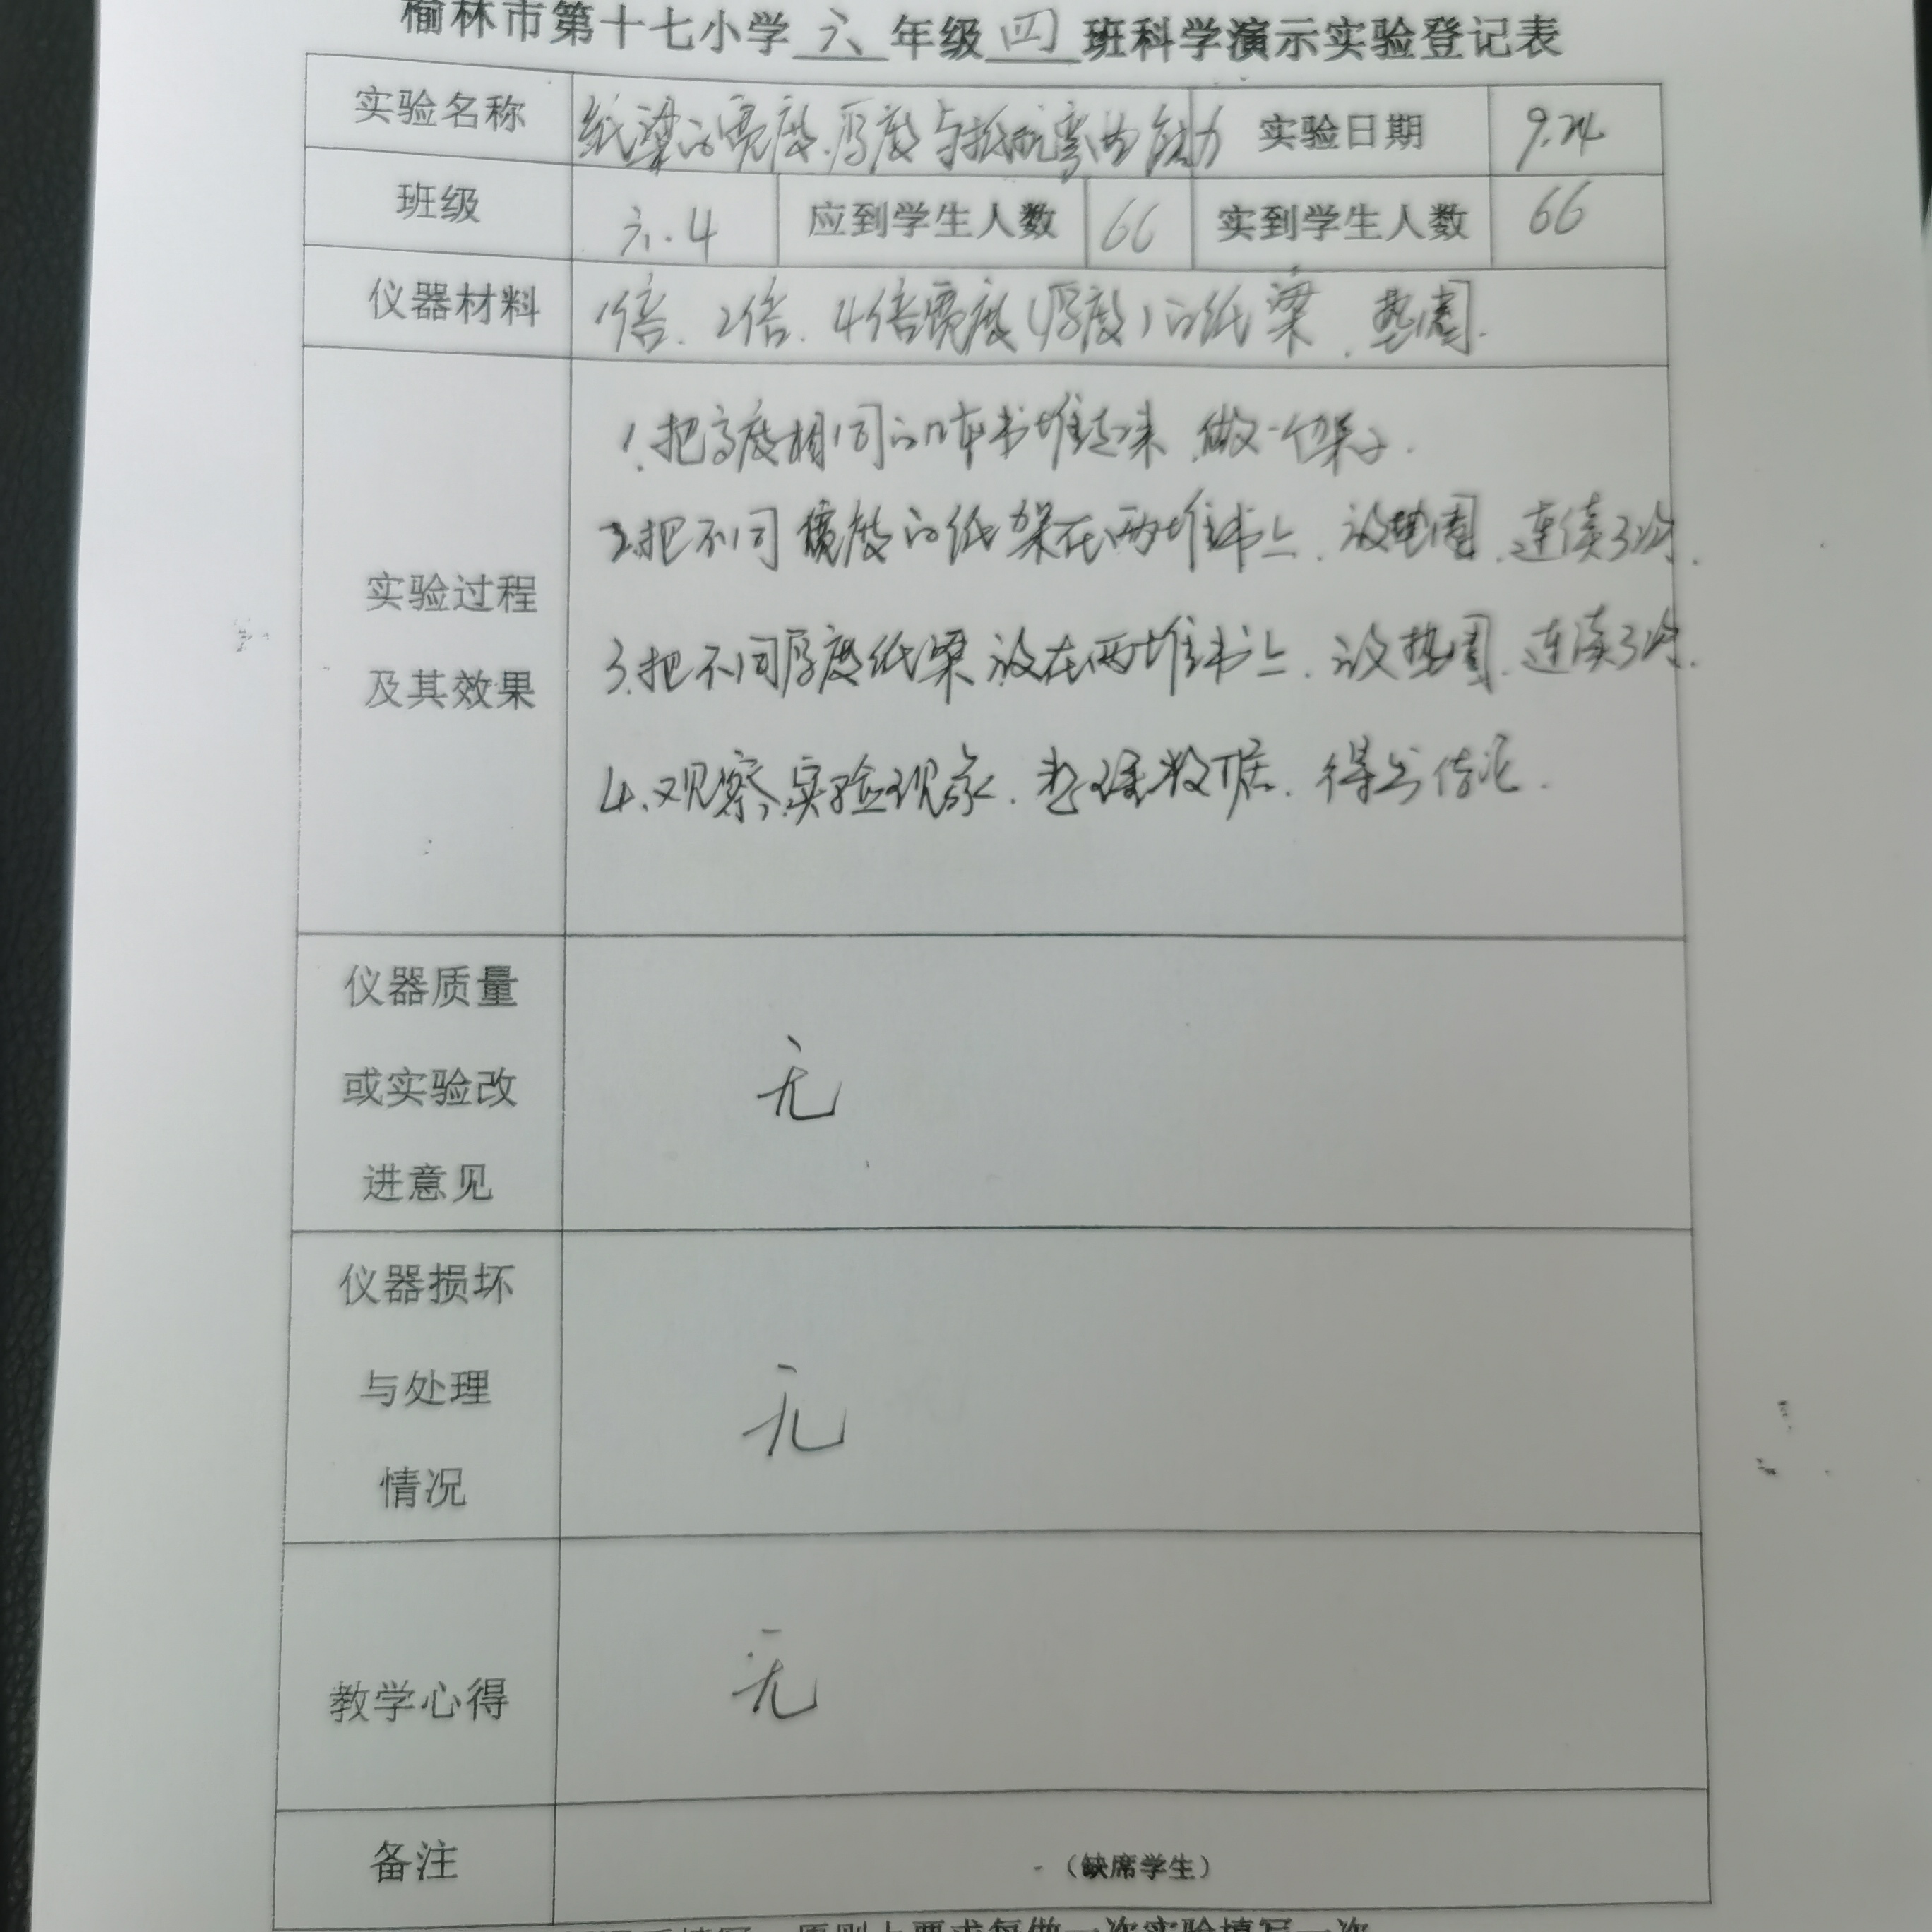 榆林市第十七小学六年级四班科学演示实验登记表
实验名称 纸梁的宽度、厚度与抵抗弯曲能力 实验日期 9.24
班级 六.4 应到学生人数 66 实到学生人数 66
仪器材料 1倍、2倍、4倍宽度(厚度)的纸梁、垫圈.
实验过程
及其效果
1.把高度相同的几本书堆起来、做一个架子.
2.把不同宽度的纸架在两堆书上、放垫圈、连续3次.
3.把不同厚度纸梁放在两堆书上、放垫圈、连续3次.
4.观察实验现象、整理数据、得出结论.
仪器质量
或实验改
进意见
无
仪器损坏
与处理
情况
无
教学心得
无
备注 （缺席学生）
原则上要求每做一次实验填写一次